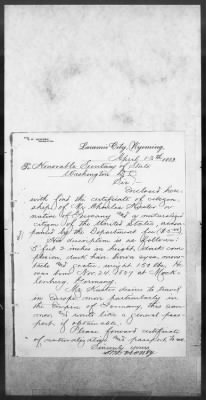 Laramie City, Wyoming,
April 13th 1889
To Honorable Secretary of State
Washington D.C.
Sir
Enclosed here-
with find the certificate of citizen
ship of Mr Charles Kuster a
native of Germany and a naturalized
citizen of the United States, accom
panied by the Department fee
His description is as follows:
5 feet 2 inches in height, dark com-
plexion, dark hair, brown eyes,
weight 150 lbs. He
was born Nov. 24. 1859 at Meck-
lenburg, Germany.
Mr. Kuster desires to travel
in Europe more particularly in
the Empire of Germany, this sum
mer and would like a general pass
port if obtainable.
Please forward certificate
of naturalization and passport to me.
Sincerely yours